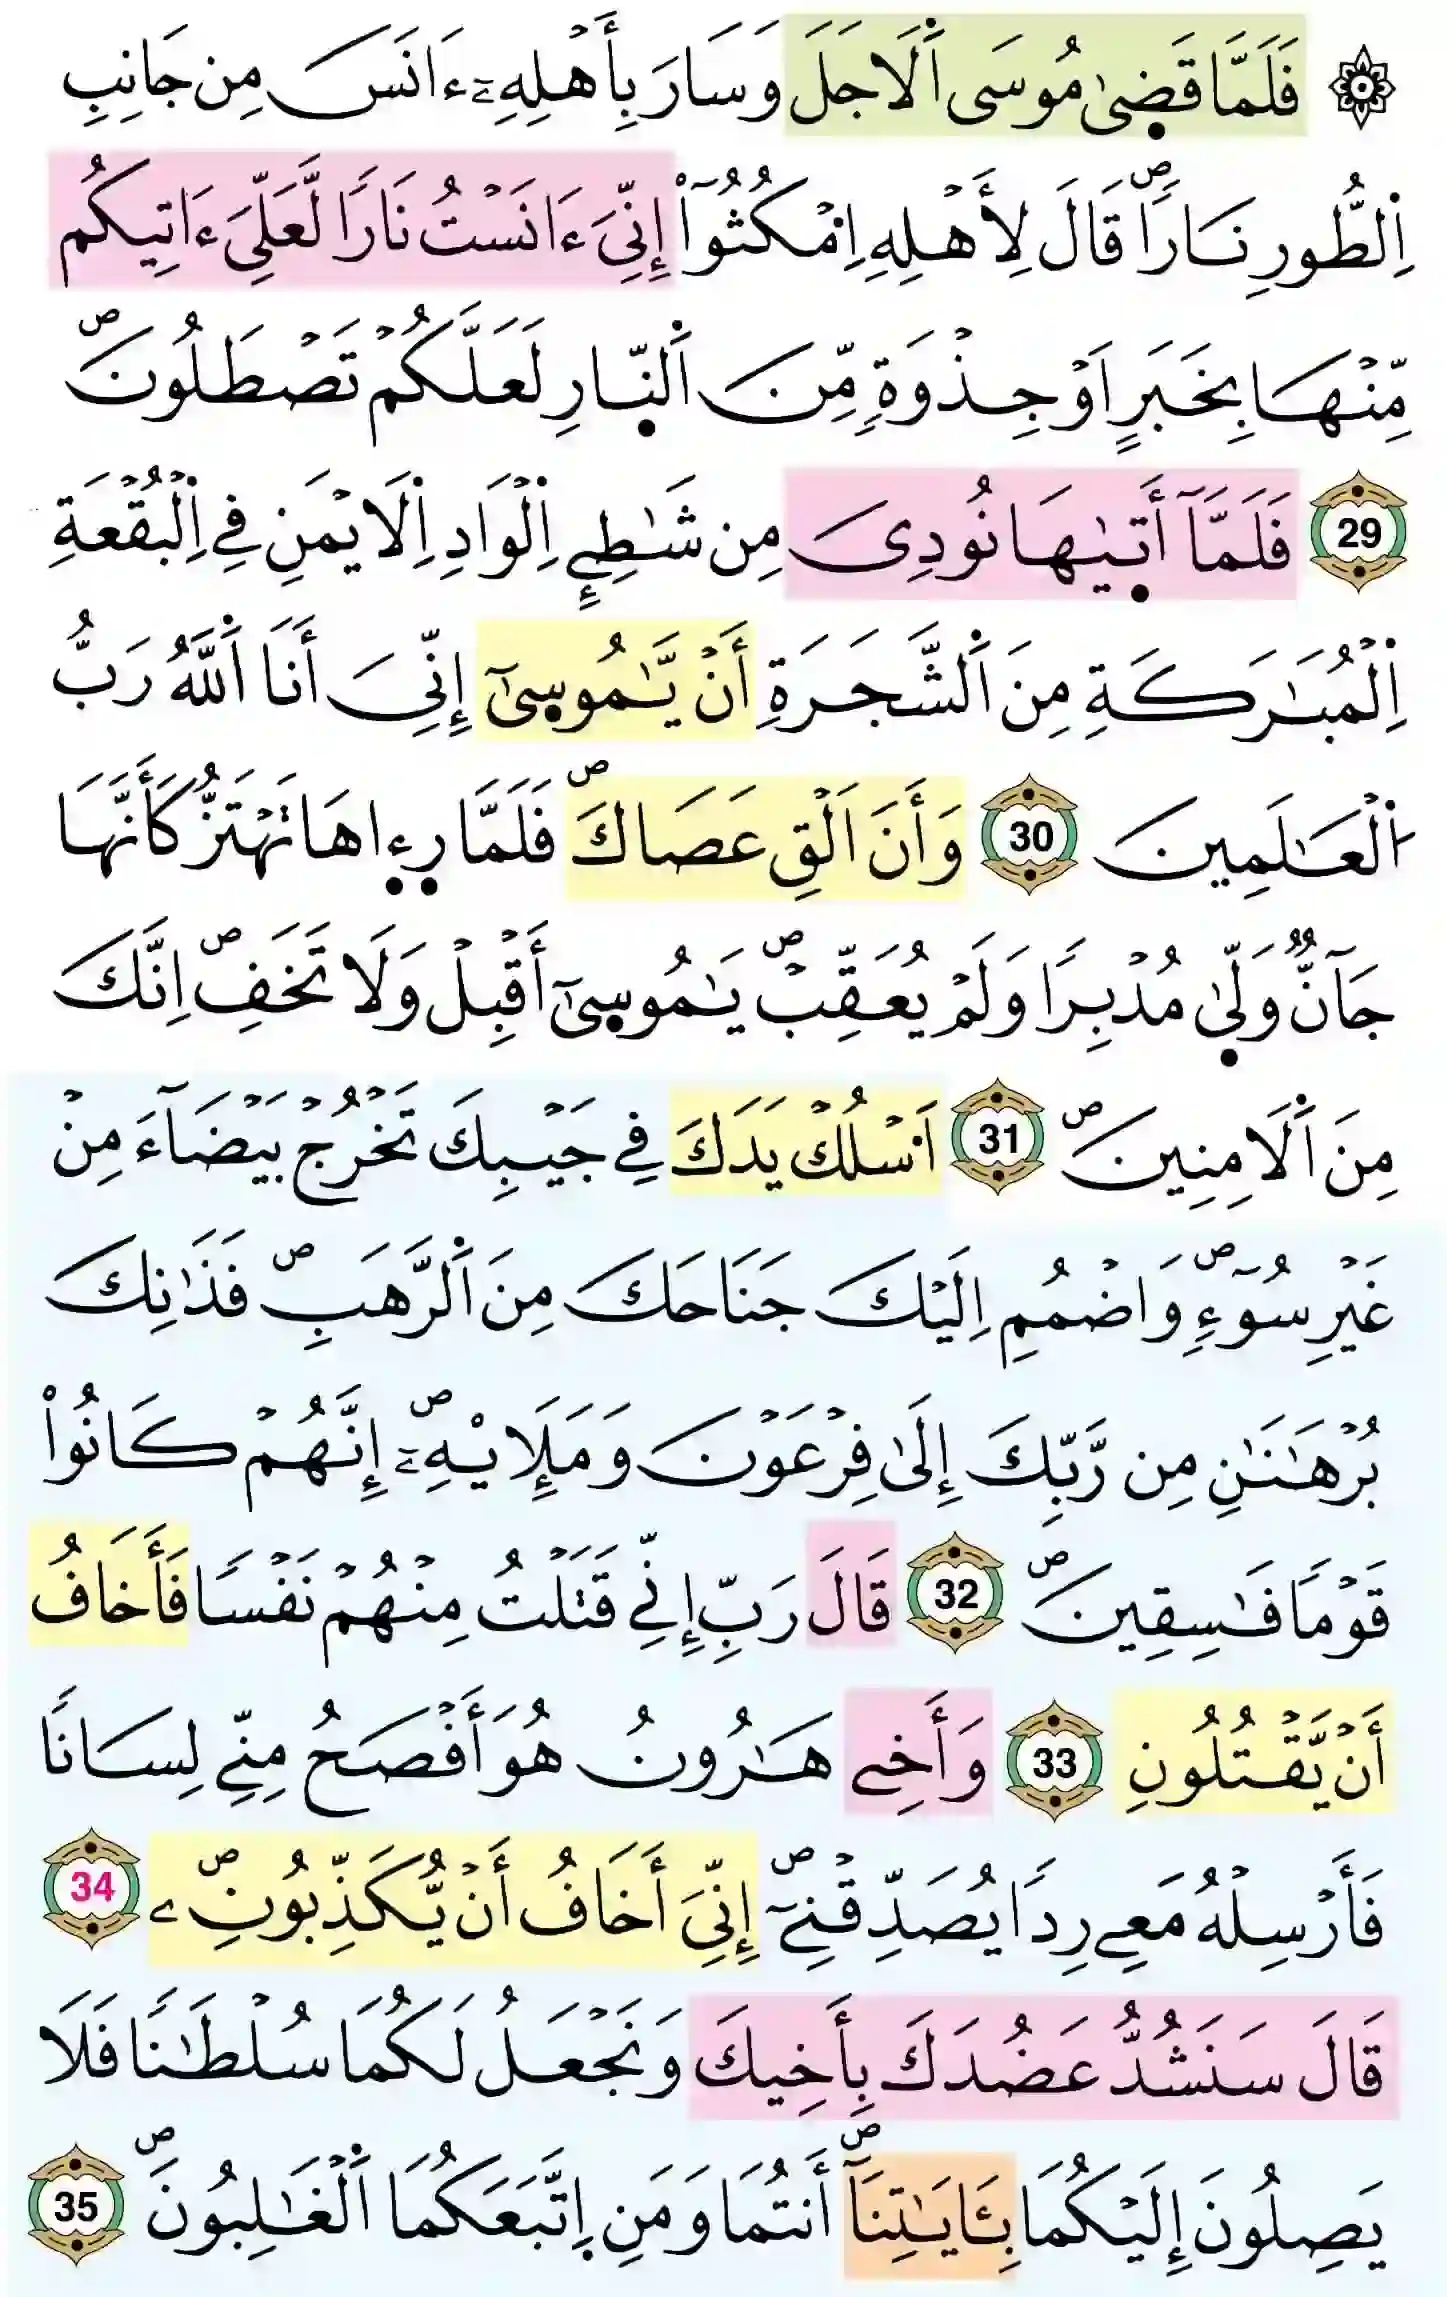 ۞ فَلَمَّا قَضٜىٰ مُوسَى اَ۬لَاجَلَ وَسَارَ بِأَهْلِهِۦٓ ءَانَسَ مِن جَانِبِ
اِ۬لطُّورِ نَاراٗۖ قَالَ لِأَهْلِهِ اِ۟مْكُثُوٓاْ إِنِّيَ ءَانَسْتُ نَاراٗ لَّعَلِّيَ ءَاتِيكُم
مِّنْهَا بِخَبَرٍ اَوْ جِذْوَةٖ مِّنَ اَ۬لنّ۪ارِ لَعَلَّكُمْ تَصْطَلُونَۖ
29 فَلَمَّآ أَتٜيٰهَا نُودِيَ مِن شَٰطِےِٕ اِ۬لْوَادِ اِ۬لَايْمَنِ فِے اِ۬لْبُقْعَةِ
اِ۬لْمُبَٰرَكَةِ مِنَ اَ۬لشَّجَرَةِ أَنْ يَّٰمُوسٜىٰٓ إِنِّيَ أَنَا اَ۬للَّهُ رَبُّ
اُ۬لْعَٰلَمِينَ 30 وَأَنَ اَلْقِ عَصَاكَۖ فَلَمَّا ر۪ء۪اهَا تَهْتَزُّ كَأَنَّهَا
جَآنّٞ وَلّٜىٰ مُدْبِراٗ وَلَمْ يُعَقِّبْۖ يَٰمُوسٜىٰٓ أَقْبِلْ وَلَا تَخَفِۖ اِنَّكَ
مِنَ اَ۬لَامِنِينَۖ 31 اَ۟سْلُكْ يَدَكَ فِے جَيْبِكَ تَخْرُجْ بَيْضَآءَ مِنْ
غَيْرِ سُوٓءٖۖ وَاضْمُمِ اِلَيْكَ جَنَاحَكَ مِنَ اَ۬لرَّهَبِۖ فَذَٰنِكَ
بُرْهَٰنَٰنِ مِن رَّبِّكَ إِلَىٰ فِرْعَوْنَ وَمَلَإِيْهِۦٓۖ إِنَّهُمْ كَانُواْ
قَوْماٗ فَٰسِقِينَۖ 32 قَالَ رَبِّ إِنِّے قَتَلْتُ مِنْهُمْ نَفْساٗ فَأَخَافُ
أَنْ يَّقْتُلُونِ 33 وَأَخِے هَٰرُونُ هُوَ أَفْصَحُ مِنِّے لِسَاناٗ
فَأَرْسِلْهُ مَعِے رِداٗ يُصَدِّقْنِےٓۖ إِنِّيَ أَخَافُ أَنْ يُّكَذِّبُونِۦۖ 34
قَالَ سَنَشُدُّ عَضُدَكَ بِأَخِيكَ وَنَجْعَلُ لَكُمَا سُلْطَٰناٗ فَلَا
يَصِلُونَ إِلَيْكُمَا بِـَٔايَٰتِنَآۖ أَنتُمَا وَمَنِ اِ۪تَّبَعَكُمَا اَ۬لْغَٰلِبُونَۖ 35